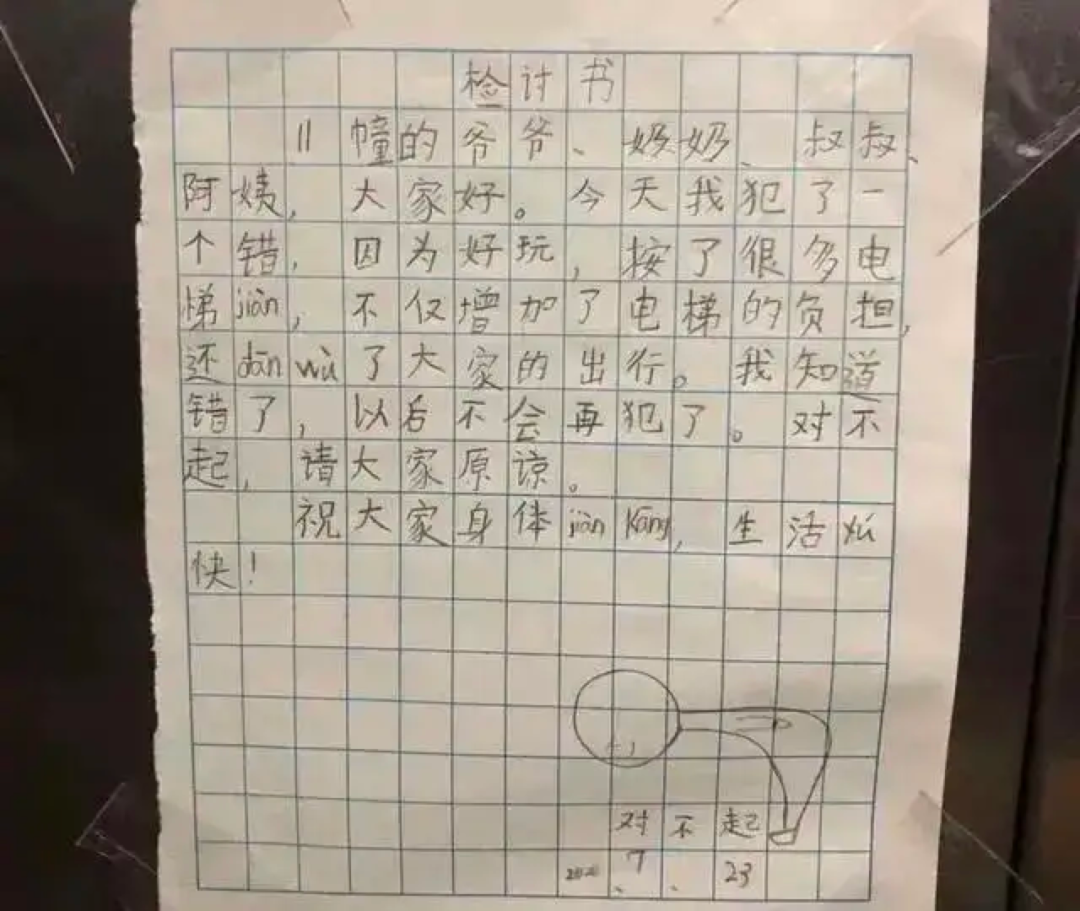 检讨书
11幢的爷爷、奶奶、叔叔、
阿姨，大家好。今天我犯了一
个错，因为好玩，按了很多电
梯jiàn，不仅增加了电梯的负担，
还dān wù了大家的出行。我知道
错了，以后不会再犯了。对不
起，请大家原谅。
祝大家身体jiàn kāng，生活yú
快！
对不起
2020、7、23